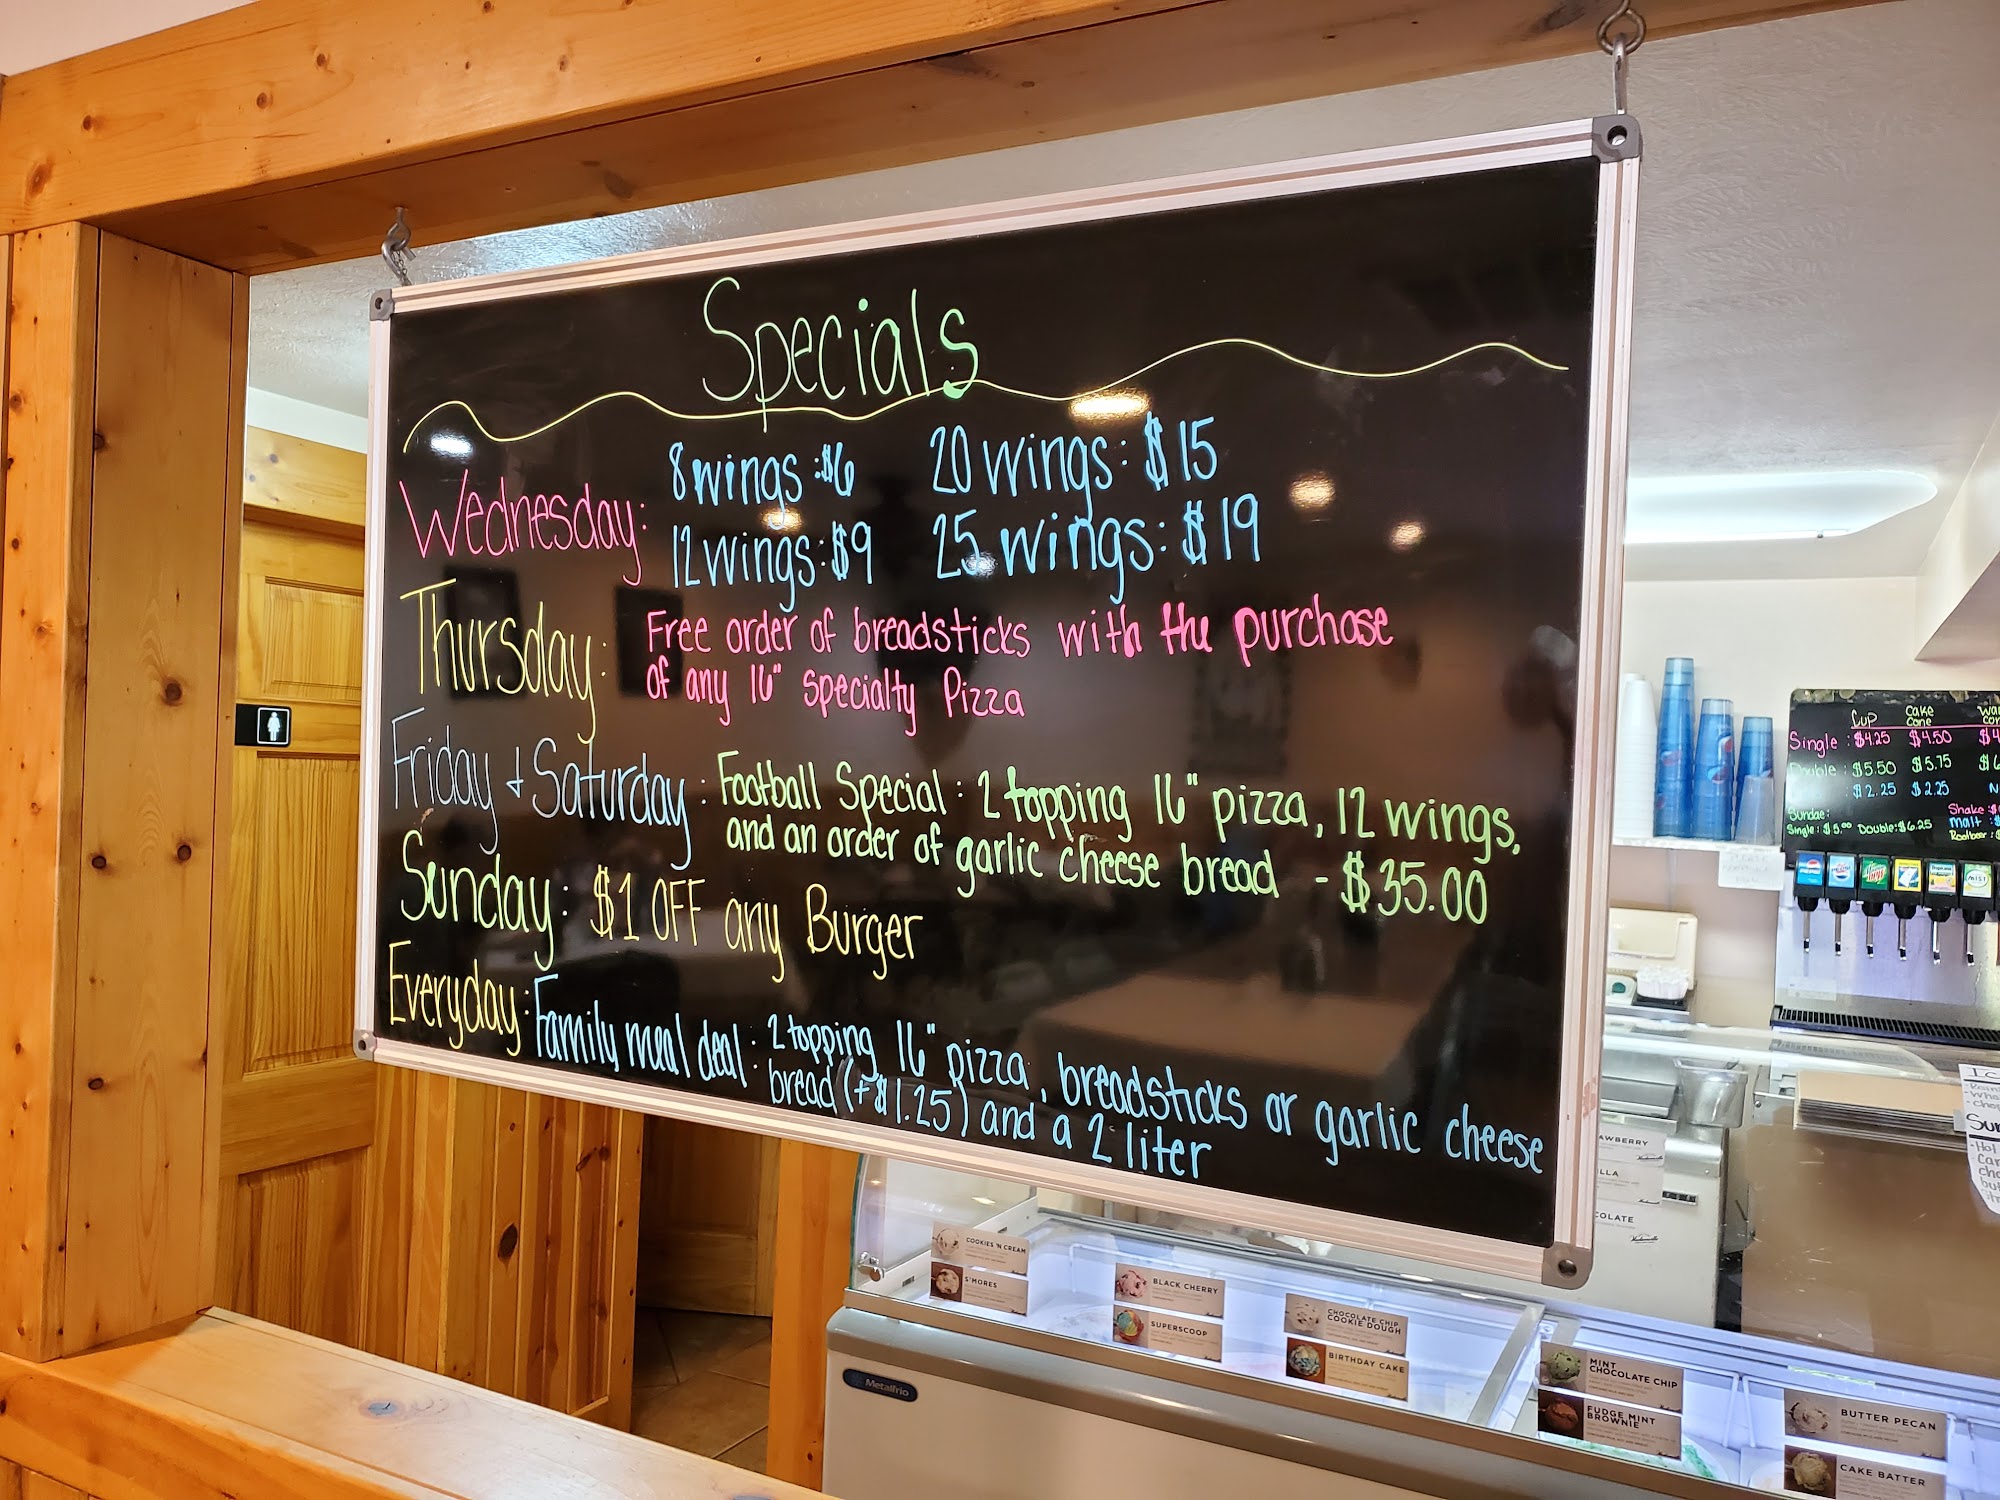 Specials
Wednesday: 8 wings: $6 20 wings: $15
12 wings: $9 25 wings: $19
Thursday: Free order of breadsticks with the purchase
of any 16" specialty Pizza
Friday + Saturday: Football Special: 2 topping 16" pizza, 12 wings,
and an order of garlic cheese bread - $35.00
Sunday: $1 OFF any Burger
Everyday: Family meal deal: 2 topping 16" pizza, breadsticks or garlic cheese
bread (+$1.25) and a 2 liter
Cup Cake Cone
Single: $4.25 $4.50
Double: $5.50 $5.75
$2.25 $2.25
Sundae: Shake
Single: $5.00 Double: $6.25 Malt:
Rootbeer
pepsi
MIST
COOKIES 'N CREAM
S'MORES
BLACK CHERRY
SUPERSCOOP
CHOCOLATE CHIP
COOKIE DOUGH
BIRTHDAY CAKE
MINT
CHOCOLATE CHIP
FUDGE MINT
BROWNIE
BUTTER PECAN
CAKE BATTER
Metalfrio